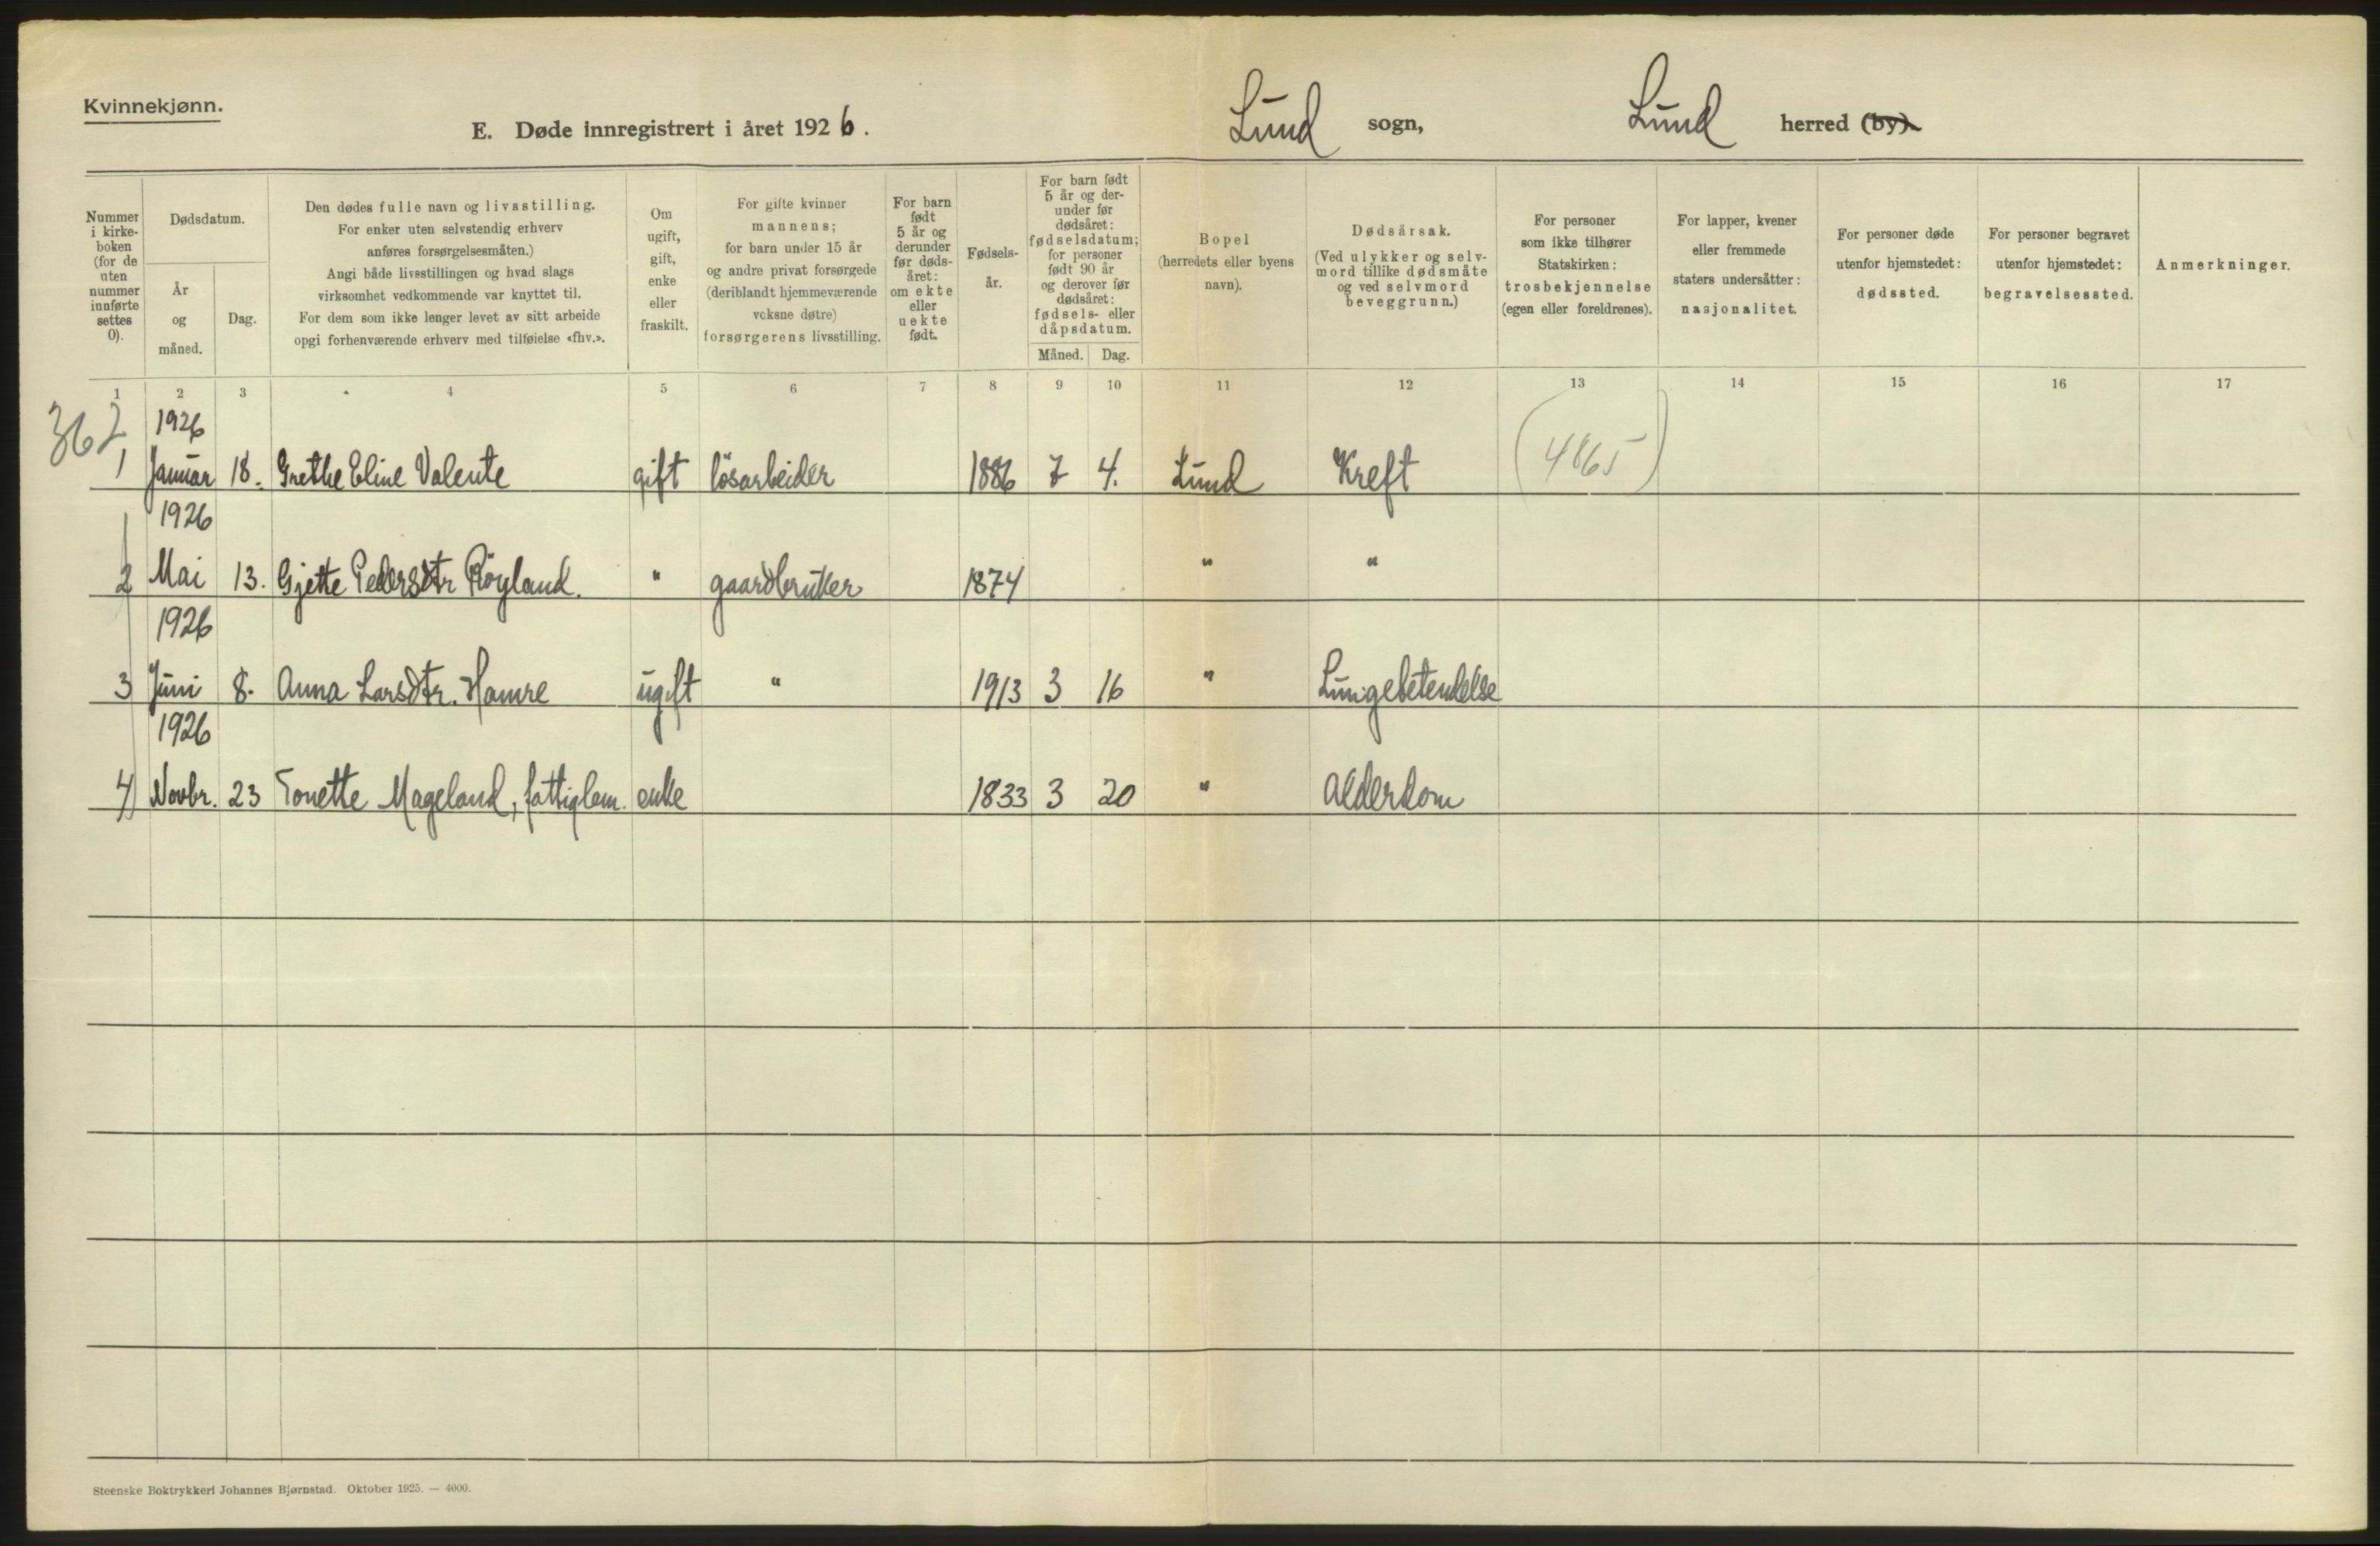 Kvinnekjønn.
E. Døde innregistrert i året 1926.
Lund sogn, Lund herred (by).
Nummer i kirke-boken (for de uten nummer innførte settes 0).
Dødsdatum.
År og måned.
Dag.
Den dødes fulle navn og livsstilling.
For enker uten selvstendig erhverv
anføres forsørgelsesmåten.)
Angi både livsstillingen og hvad slags
virksomhet vedkommende var knyttet til.
For dem som ikke lenger levet av sitt arbeide
opgi forhenværende erhverv med tilføielse «fhv.».
Om ugift, gift, enke eller fraskilt.
For gifte kvinner
mannens;
for barn under 15 år
og andre privat forsørgede
(deriblandt hjemmeværende
voksne døtre)
forsørgerens livsstilling.
For barn født 5 år og derunder før døds-året: om ekte eller uekte født.
Fødsels-år.
For barn født 5 år og der-under før dødsåret: fødselsdatum; for personer født 90 år og derover før dødsåret: fødsels- eller dåpsdatum.
Måned. Dag.
Bopel
(herredets eller byens
navn).
Dødsårsak.
(Ved ulykker og selv-
mord tillike dødsmåte
og ved selvmord
beveggrunn.)
For personer
som ikke tilhører
Statskirken:
trosbekjennelse
(egen eller foreldrenes).
For lapper, kvener
eller fremmede
staters undersåtter:
nasjonalitet.
For personer døde
utenfor hjemstedet:
dødssted.
For personer begravet
utenfor hjemstedet:
begravelsessted.
Anmerkninger.
1 2 3 4 5 6 7 8 9 10 11 12 13 14 15 16 17
362
1926
1 Januar 18. Grethe Eline Valente gift løsarbeider 1886 7 4. Lund Kreft (4865)
1926
2 Mai 13. Gjette Pedersdtr Røyland. " gaardbruker 1874 " "
1926
3 Juni 8. Anna Larsdtr. Hamre ugift " 1913 3 16 " Lungebetendelse
1926
4 Novbr. 23 Tonette Mageland, fattiglem. enke 1833 3 20 " Alderdom
Steenske Boktrykkeri Johannes Bjørnstad. Oktober 1925. — 4000.